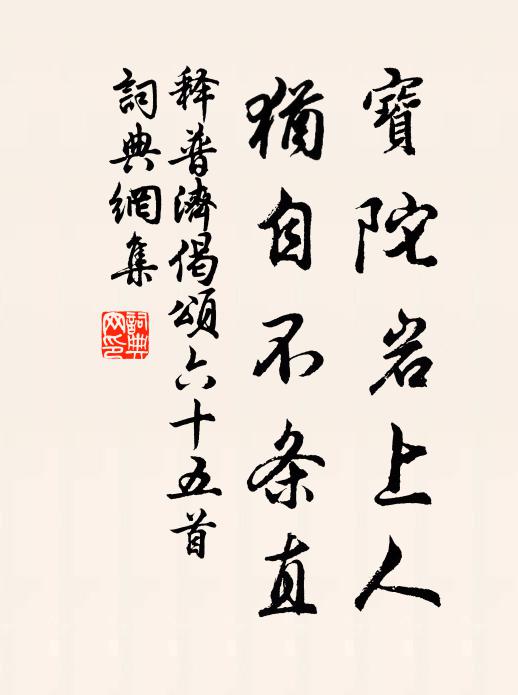 寶陀岩上人
猶自不条直
释普濟偈頌六十五首
詞典網集
詞典
网印